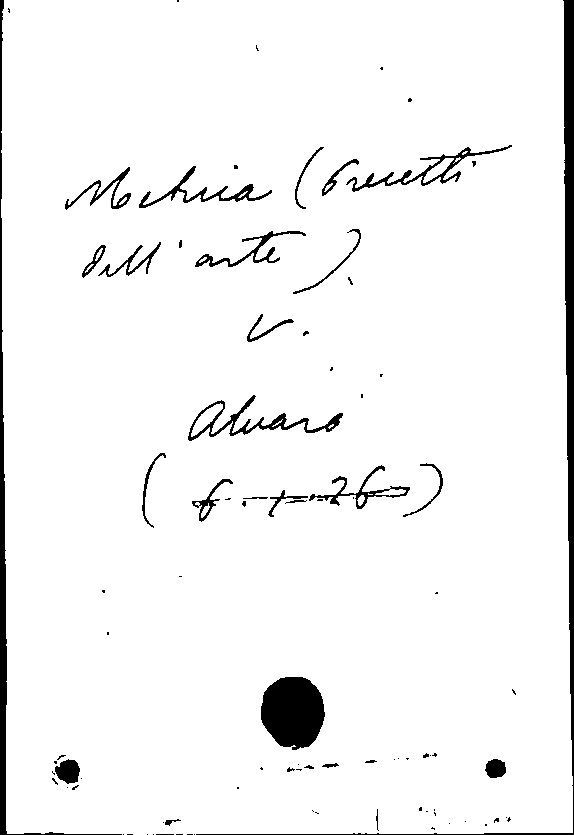 Metrica (Precetti
dell'arte).
V.
Alvaro
(6.1.26)